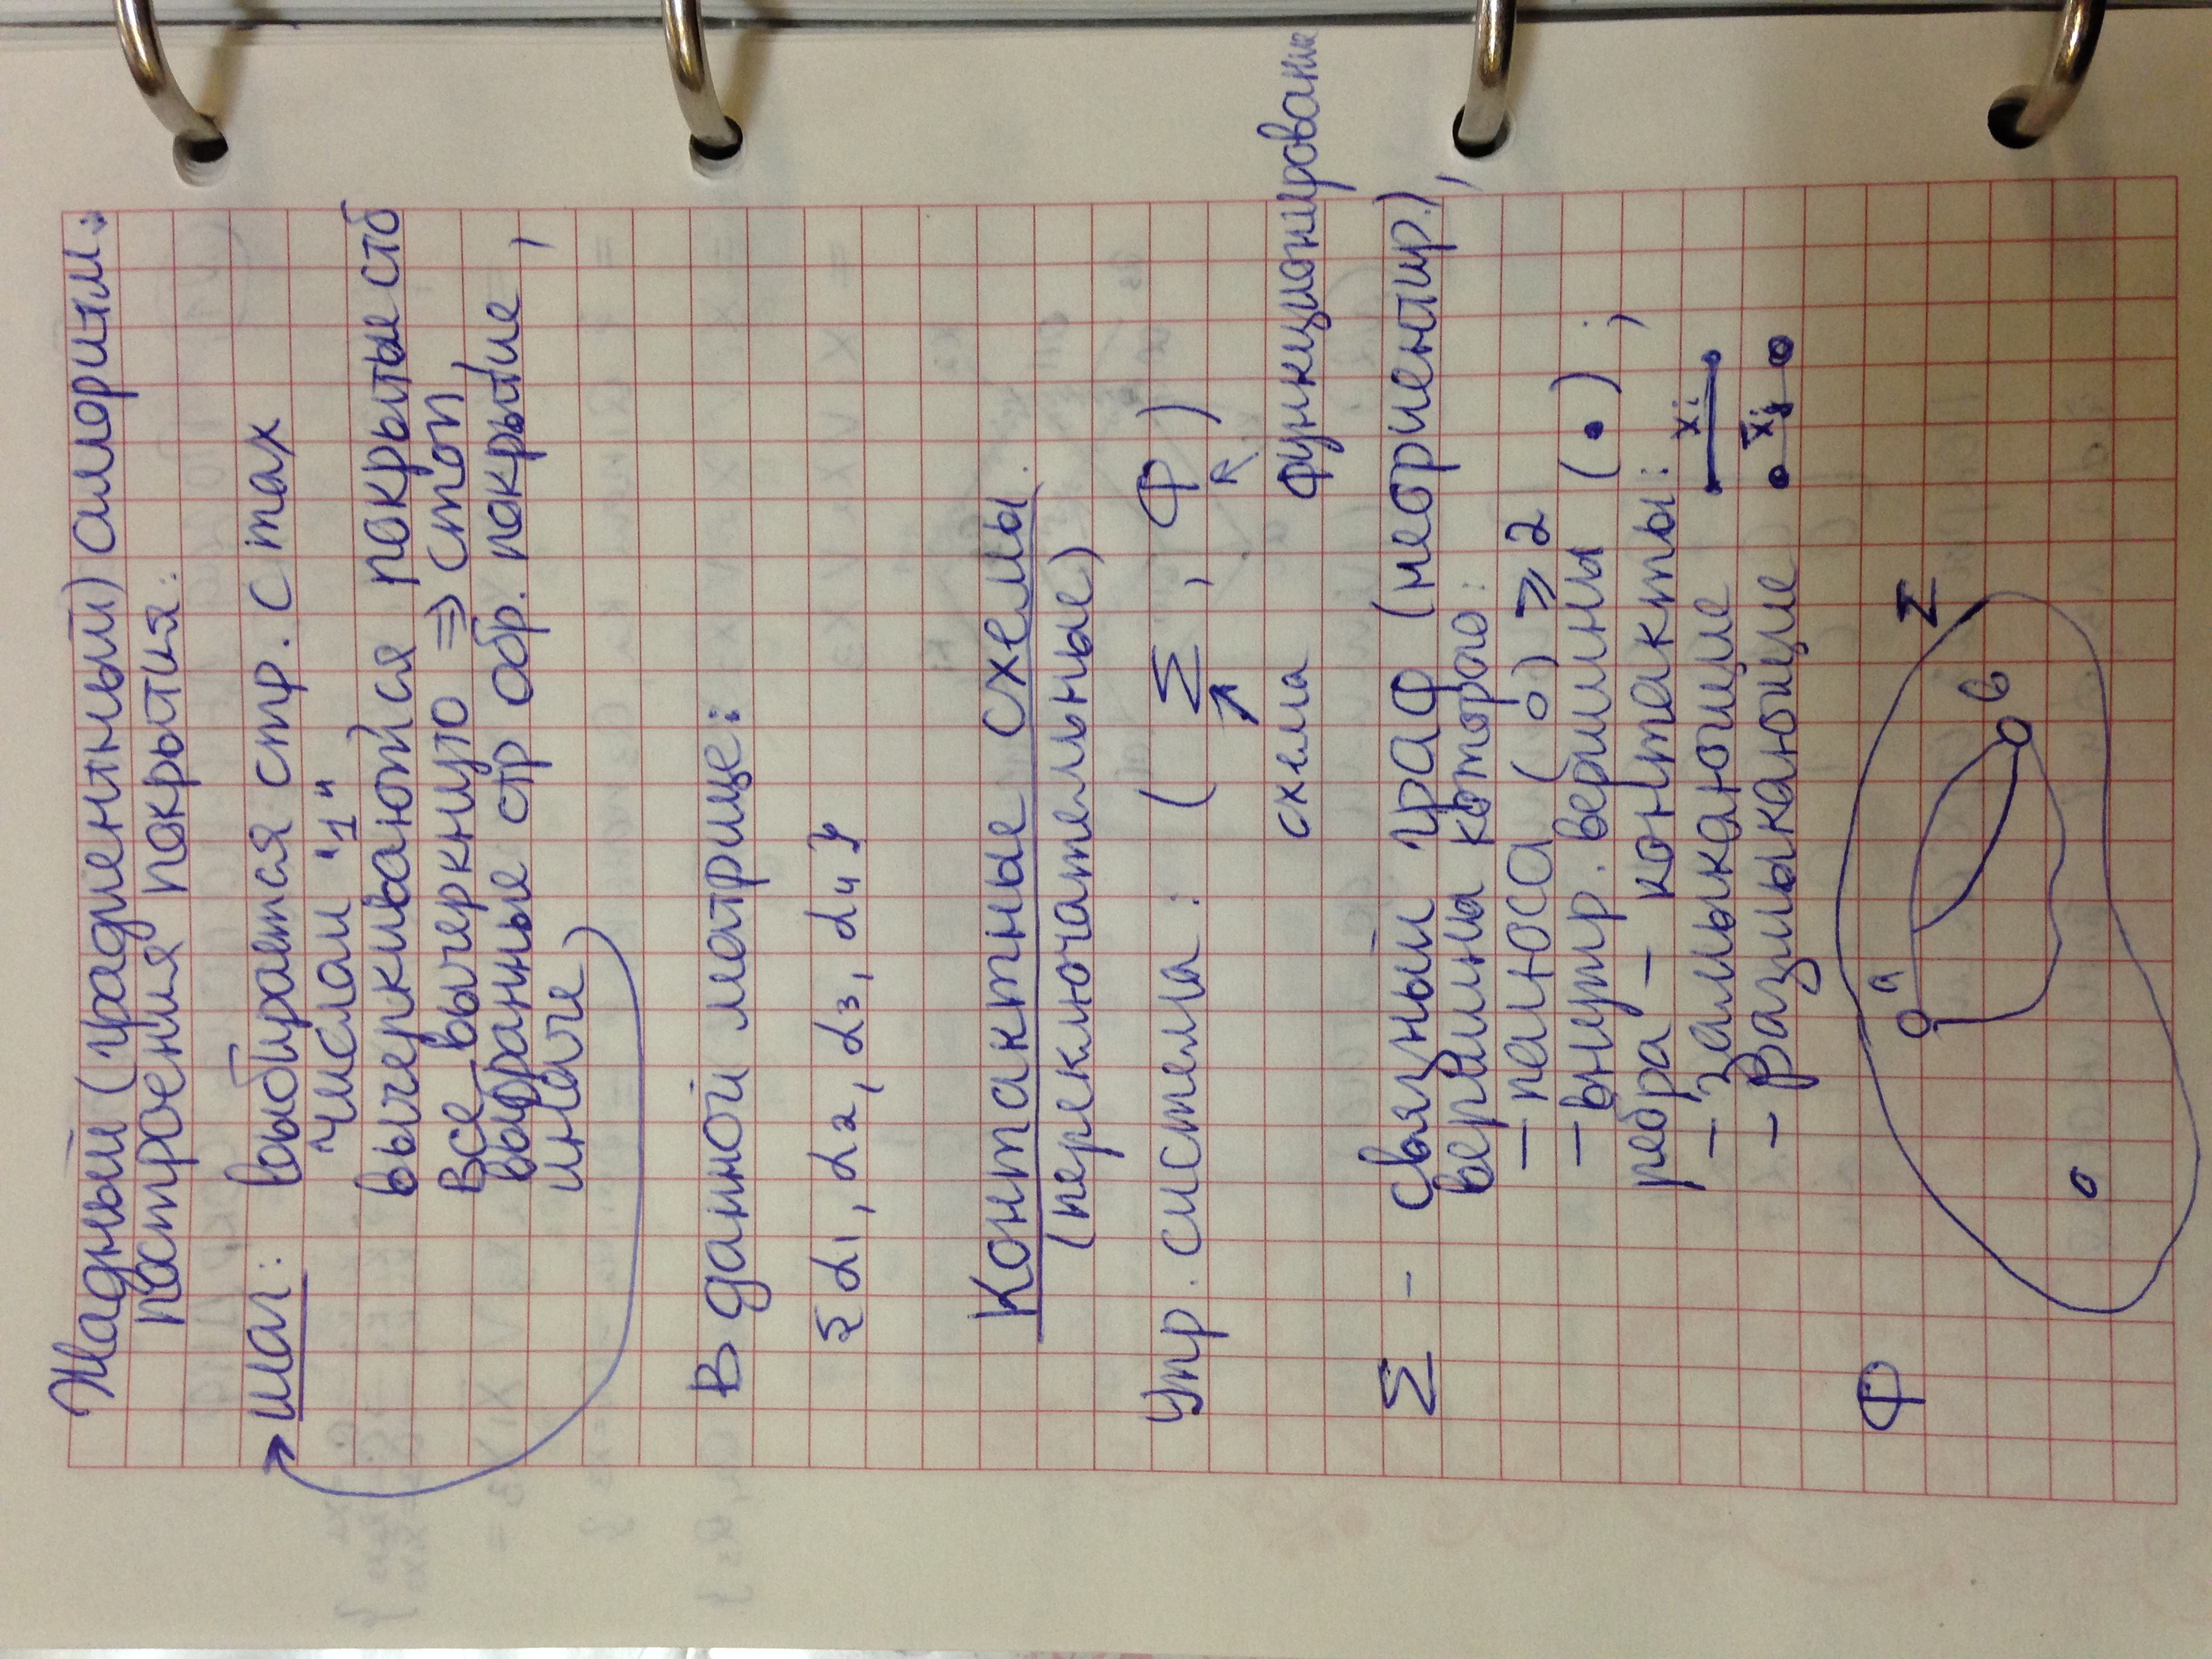 Жадный (градиентный) алгоритм
построения покрытия:
шаг: выбирается стр. с max
числом "1"
вычеркиваются покрытые стб
все вычеркнуто ⇒ стоп,
выбранные стр обр. покрытие,
иначе
В данной матрице:
{α1, α2, α3, α4}
Контактные схемы
(переключательные)
Упр. система: (Σ, Φ)
схема функционирование
Σ - связный граф (неориентир.),
вершины которого:
- полюса (o) ⩾ 2
- внутр. вершины (•);
ребра - контакты:
- замыкающие xi
- размыкающие x̄j
Φ
Σ
a
b